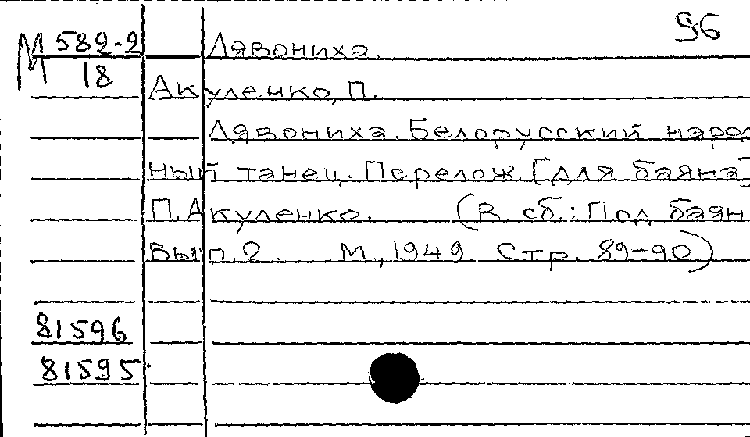 96
М 582-2 Лявониха.
18
Акуленко, П.
Лявониха. Белорусский народ
ный танец. Перелож. [для баяна]
П. Акуленко. (В сб.: Под баян
Вып. 2 М., 1949. Стр. 89-90)
81596
81595